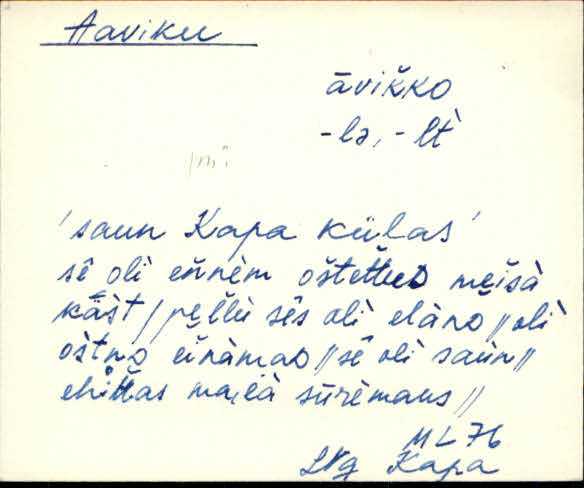 Aaviku
āviķķo
-lə, -lt̀
/mi
'saun Kapa külas'
sê oli eňnèm oštettuD meišà
käšt / peľľù sês oli elànD // oli
ostnD eînàmaD // sê oli saùn //
ehittas majèà sūrèmaus //
ML 76
Lvg Kapa